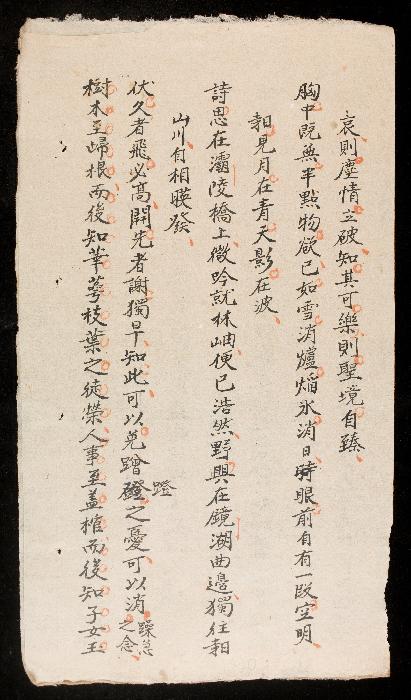 哀則塵情立破知其可樂則聖境自臻
胸中既無半點物欲已如雪消爐焰氷消日時眼前自有一段空明
見月在青天影在波
詩思在灞陵橋上微吟就林岫便已浩然野興在鏡湖曲邊獨往
山川自相暎發
伏久者飛必高開先者謝獨早知此可以免蹭磴之憂可以消躁急之念
蹬
樹木至歸根而後知華萼枝葉之徒榮人事至盖棺而後知子女玉